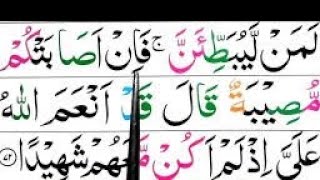 لَمَنْ لَّيُبَطِّئَنَّ ۚ فَاِنْ اَصَابَتْكُمْ
مُّصِيْبَةٌ قَالَ قَدْ اَنْعَمَ اللّٰهُ
عَلَيَّ اِذْ لَمْ اَكُنْ مَّعَهُمْ شَهِيْدًا ﴿۷۲﴾